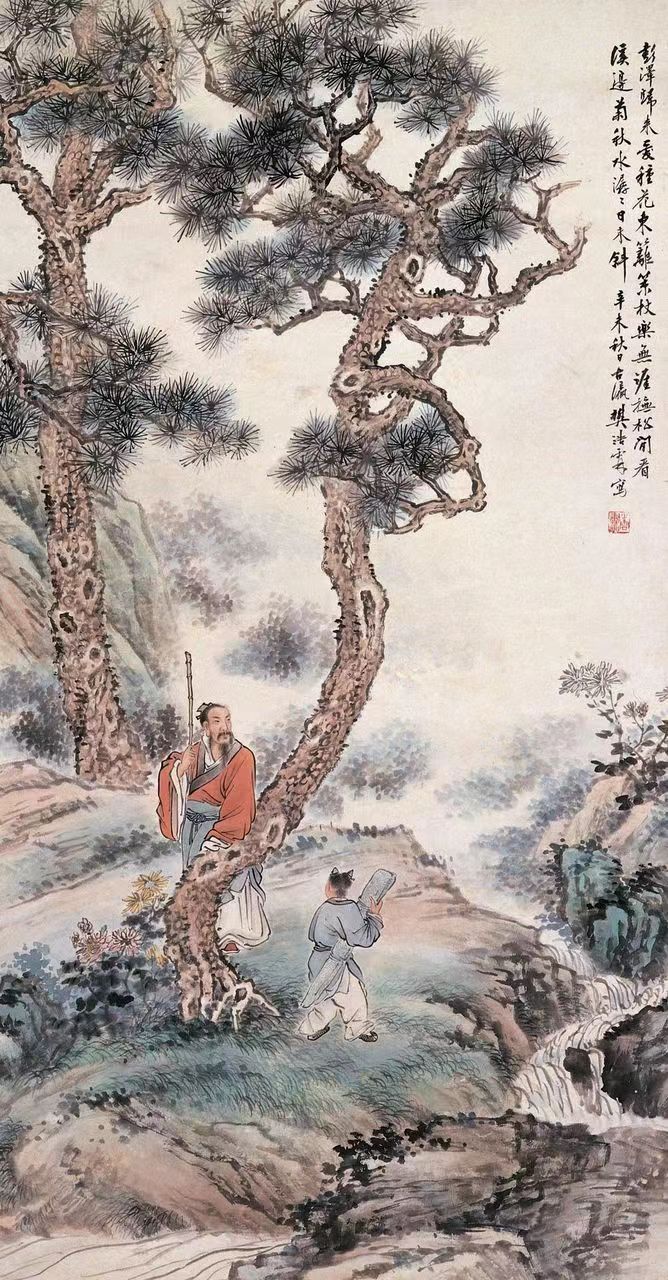 彭澤歸來愛種花東籬策杖樂無涯撫松閒看
溪邊菊秋水澹〻日未斜 辛未秋日古瀛樊浩霖寫